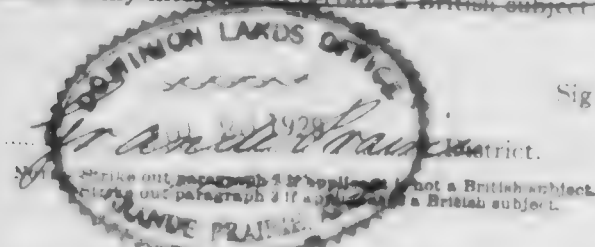 a British subject
DOMINION LANDS OFFICE
Sig
1928
Grande Prairie District.
Strike out paragraph if applicant not a British subject.
out paragraph 3 if a British subject.
GRANDE PRAIRIE